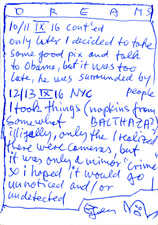 DREAMS
10/11 IX 16 cont'ed
only later I decided to take
some good pix and talk
to Obama, but it was too
late, he was surrounded by
people
12/13 IX 16 NYC
I took things (napkins from
somewhat BALTHAZAR?)
illegally, only the I realized
there were cameras, but
it was only a minor "crime"
so i hoped it would go
unnoticed and/or
undetected